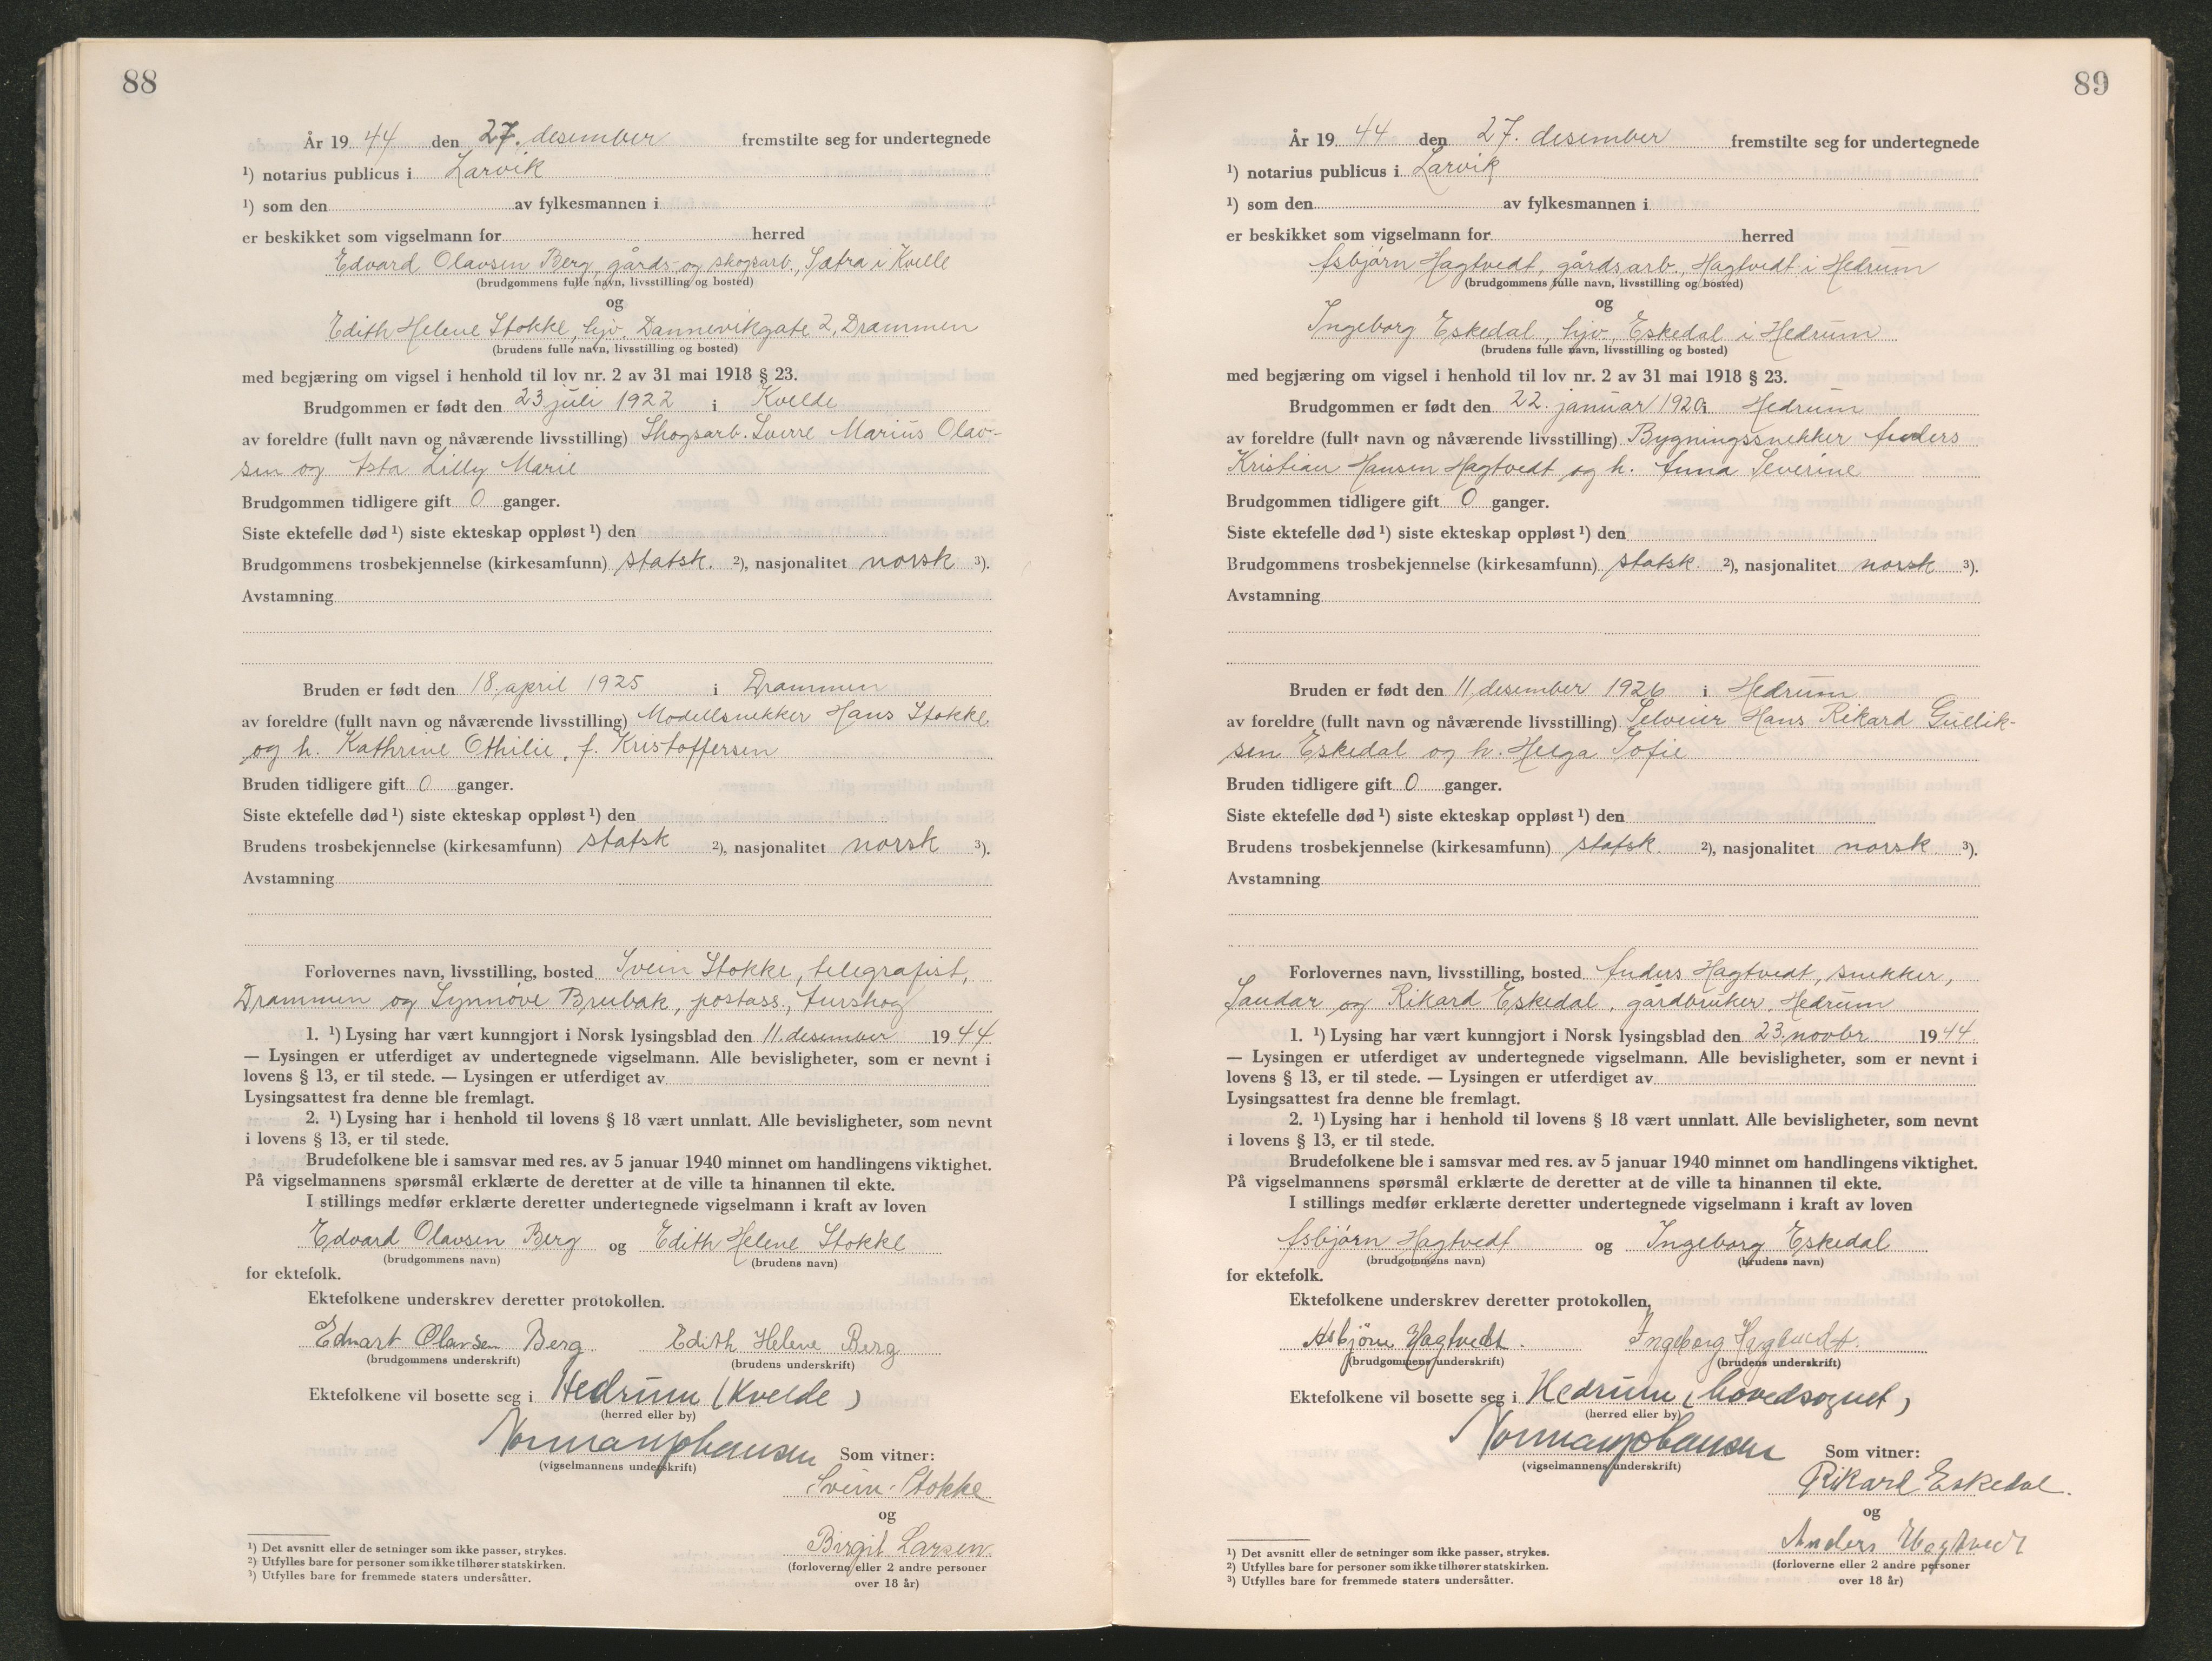 88
År 19 44 den 27. desember fremstilte seg for undertegnede
¹) notarius publicus i Larvik
¹) som den av fylkesmannen i
er beskikket som vigselmann for herred
Edvard Olavsen Berg, gårds- og skogsarb., Sætra i Kvelle
(brudgommens fulle navn, livsstilling og bosted)
og
Edith Helene Stokke, hjv. Dannevikgate 2, Drammen
(brudens fulle navn, livsstilling og bosted)
med begjæring om vigsel i henhold til lov nr. 2 av 31 mai 1918 § 23.
Brudgommen er født den 23 juli 1922 i Kvelde
av foreldre (fullt navn og nåværende livsstilling) Skogsarb. Sverre Marius Olav-
sen og Asta Lilly Marie
Brudgommen tidligere gift 0 ganger.
Siste ektefelle død ¹) siste ekteskap oppløst ¹) den
Brudgommens trosbekjennelse (kirkesamfunn) statsk. ²), nasjonalitet norsk ³).
Avstamning
Bruden er født den 18. april 1925 i Drammen
av foreldre (fullt navn og nåværende livsstilling) Modellsnekker Hans Stokke
og h. Kathrine Othilie, f. Kristoffersen
Bruden tidligere gift 0 ganger.
Siste ektefelle død ¹) siste ekteskap oppløst ¹) den
Brudens trosbekjennelse (kirkesamfunn) statsk ²), nasjonalitet norsk ³).
Avstamning
Forlovernes navn, livsstilling, bosted Svein Stokke, telegrafist,
Drammen og Synnöve Brubak, postass., Aurskog
1. ¹) Lysing har vært kunngjort i Norsk lysingsblad den 11. desember 1944
— Lysingen er utferdiget av undertegnede vigselmann. Alle bevisligheter, som er nevnt i
lovens § 13, er til stede. — Lysingen er utferdiget av
Lysingsattest fra denne ble fremlagt.
2. ¹) Lysing har i henhold til lovens § 18 vært unnlatt. Alle bevisligheter, som nevnt
i lovens § 13, er til stede.
Brudefolkene ble i samsvar med res. av 5 januar 1940 minnet om handlingens viktighet.
På vigselmannens spørsmål erklærte de deretter at de ville ta hinannen til ekte.
I stillings medfør erklærte deretter undertegnede vigselmann i kraft av loven
Edvard Olavsen Berg og Edith Helene Stokke
(brudgommens navn) (brudens navn)
for ektefolk.
Ektefolkene underskrev deretter protokollen.
Edvart Olavsen Berg Edith Helene Berg
(brudgommens underskrift) (brudens underskrift)
Ektefolkene vil bosette seg i Hedrum (Kvelde)
(herred eller by)
Norman Johansen Som vitner:
(vigselmannens underskrift)
Svein Stokke
og
Birgit Larsen.
(forloverne eller 2 andre personer
over 18 år)
¹) Det avsnitt eller de setninger som ikke passer, strykes.
²) Utfylles bare for personer som ikke tilhører statskirken.
³) Utfylles bare for fremmede staters undersåtter.
89
År 19 44 den 27. desember fremstilte seg for undertegnede
¹) notarius publicus i Larvik
¹) som den av fylkesmannen i
er beskikket som vigselmann for herred
Asbjørn Hagtvedt, gårdsarb., Hagtvedt i Hedrum
(brudgommens fulle navn, livsstilling og bosted)
og
Ingeborg Eskedal, hjv., Eskedal i Hedrum
(brudens fulle navn, livsstilling og bosted)
med begjæring om vigsel i henhold til lov nr. 2 av 31 mai 1918 § 23.
Brudgommen er født den 22. januar 1920 i Hedrum
av foreldre (fullt navn og nåværende livsstilling) Bygningssnekker Anders
Kristian Hansen Hagtvedt og h. Anna Severine
Brudgommen tidligere gift 0 ganger.
Siste ektefelle død ¹) siste ekteskap oppløst ¹) den
Brudgommens trosbekjennelse (kirkesamfunn) statsk. ²), nasjonalitet norsk ³).
Avstamning
Bruden er født den 11. desember 1926 i Hedrum
av foreldre (fullt navn og nåværende livsstilling) Selveier Hans Rikard Gullik-
sen Eskedal og h. Helga Sofie
Bruden tidligere gift 0 ganger.
Siste ektefelle død ¹) siste ekteskap oppløst ¹) den
Brudens trosbekjennelse (kirkesamfunn) statsk. ²), nasjonalitet norsk. ³).
Avstamning
Forlovernes navn, livsstilling, bosted Anders Hagtvedt, snekker,
Sandar og Rikard Eskedal, gårdbruker, Hedrum
1. ¹) Lysing har vært kunngjort i Norsk lysingsblad den 23. novbr. 1944
— Lysingen er utferdiget av undertegnede vigselmann. Alle bevisligheter, som er nevnt i
lovens § 13, er til stede. — Lysingen er utferdiget av
Lysingsattest fra denne ble fremlagt.
2. ¹) Lysing har i henhold til lovens § 18 vært unnlatt. Alle bevisligheter, som nevnt
i lovens § 13, er til stede.
Brudefolkene ble i samsvar med res. av 5 januar 1940 minnet om handlingens viktighet.
På vigselmannens spørsmål erklærte de deretter at de ville ta hinannen til ekte.
I stillings medfør erklærte deretter undertegnede vigselmann i kraft av loven
Asbjørn Hagtvedt og Ingeborg Eskedal
(brudgommens navn) (brudens navn)
for ektefolk.
Ektefolkene underskrev deretter protokollen.
Asbjörn Hagtvedt. Ingeborg Hagtvedt.
(brudgommens underskrift) (brudens underskrift)
Ektefolkene vil bosette seg i Hedrum (hovedsognet)
(herred eller by)
Norman Johansen Som vitner:
(vigselmannens underskrift)
Rikard Eskedal.
og
Anders Hagtvedt
(forloverne eller 2 andre personer
over 18 år)
¹) Det avsnitt eller de setninger som ikke passer, strykes.
²) Utfylles bare for personer som ikke tilhører statskirken.
³) Utfylles bare for fremmede staters undersåtter.